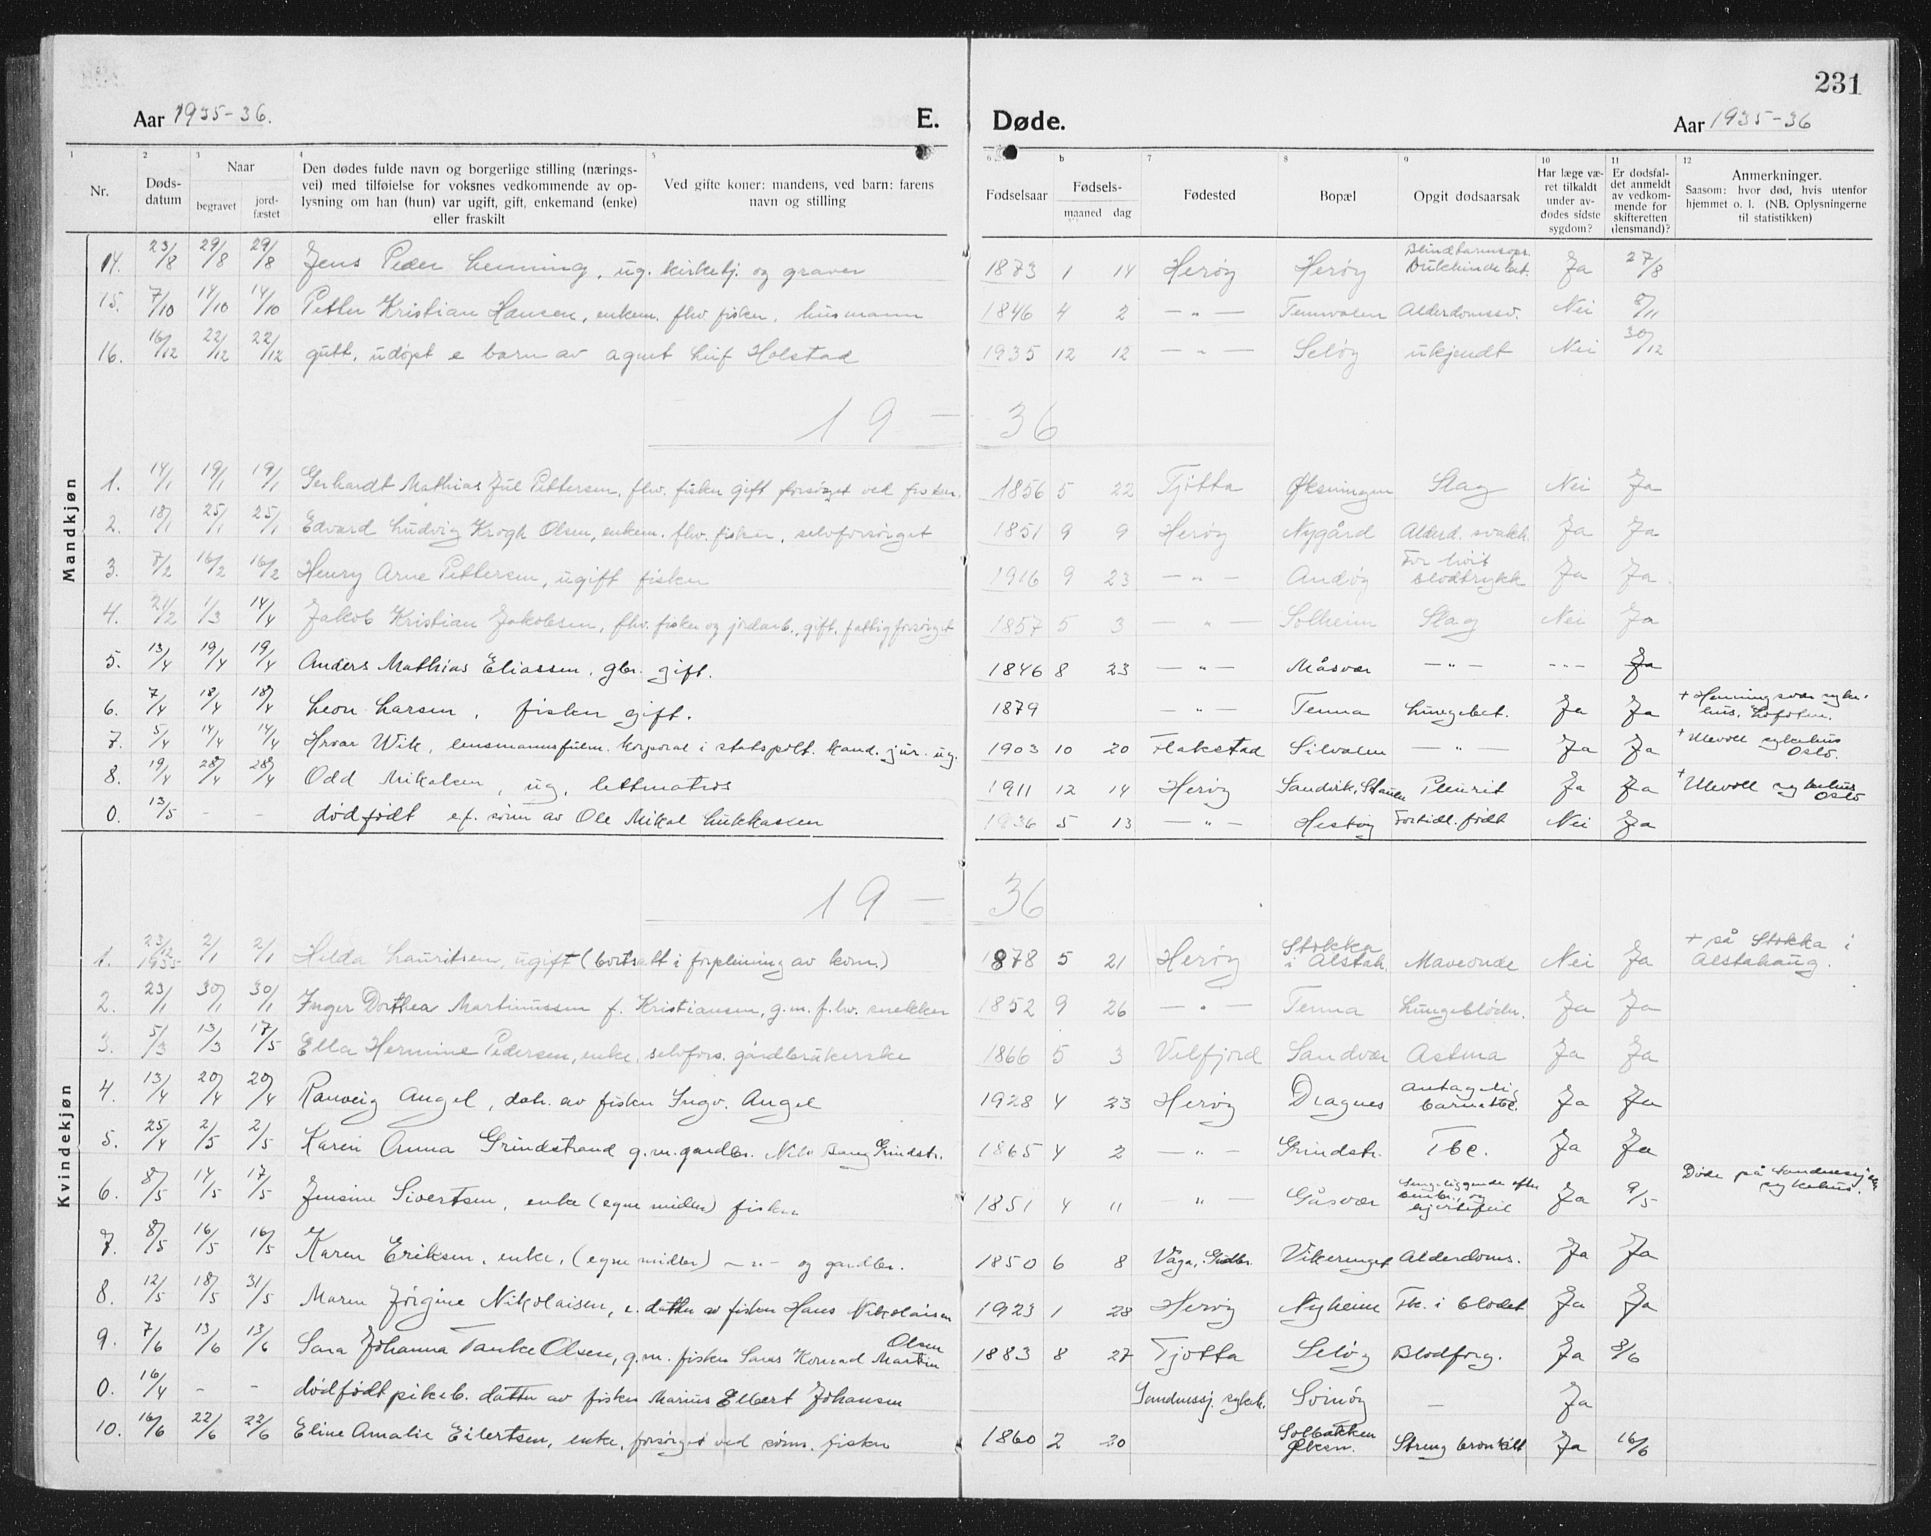 231
Aar 1935-36. E. Døde. Aar 1935-36
1 2 3 4 5 6 b 7 8 9 10 11 12
Nr. Døds-datum Naar begravet jord-fæstet Den dødes fulde navn og borgerlige stilling (nærings-vei) med tilføielse for voksnes vedkommende av op-lysning om han (hun) var ugift, gift, enkemand (enke) eller fraskilt Ved gifte koner: mandens, ved barn: farens navn og stilling Fødselsaar Fødsels- maaned dag Fødested Bopæl Opgit dødsaarsak Har læge væ-ret tilkaldt under av-dødes sidste sygdom? Er dødsfal-det anmeldt av vedkom-mende for skifteretten (lensmand)? Anmerkninger. Saasom: hvor død, hvis utenfor hjemmet o. l. (NB. Oplysningerne til statistikken)
Mandkjøn
14. 23/8 29/8 29/8 Jens Peder Henning, ug. kirketj. og graver 1873 1 14 Herøy Herøy Blindtarmsop. Bukhindebet. Ja 27/8
15. 7/10 14/10 14/10 Petter Kristian Hansen, enkem. fhv. fisker, husmann 1846 4 2 — " — Tennvalen Alderdomssv. Nei 8/11
16. 16/12 22/12 22/12 gutt, udøpt e barn av agent Leif Holstad 1935 12 12 — " — Seløy ukjendt Nei 30/12
19 — 36
1. 14/1 19/1 19/1 Gerhardt Mathias Jul Pettersen, fhv. fisker gift forsørget ved fisken. 1856 5 22 Tjøtta Øksningen Slag Nei Ja
2. 18/1 25/1 25/1 Edvard Ludvig Krogh Olsen, enkem. fhv. fisker, selvforsørget 1851 9 9 Herøy Nygård Alderd. svakh. Ja Ja
3. 7/2 16/2 16/2 Henry Arne Pettersen, ugift fisker 1916 9 23 — " — Andøy For høit blodtrykk Ja Ja
4. 21/2 1/3 14/4 Jakob Kristian Jakobsen, fhv. fisker og jordarb., gift, fattigforsørget 1857 5 3 — " — Solheim Slag Nei Ja
5. 13/4 19/4 19/4 Anders Mathias Eliassen, gbr. gift. 1846 8 23 — " — Måsvær — " — - - - Ja
6. 7/4 18/4 18/4 Leon Larsen, fisker gift. 1879 — " — Tenna Lungebet. Ja Ja + Henningsvær sykehus, Lofoten.
7. 5/4 14/4 14/4 Hroar Wik, lensmannsfulm. korporal i statspolt. kand. jur. ug. 1903 10 20 Flakstad Silvalen — " — Ja Ja + Ullevoll sykehus Oslo.
8. 19/4 28/4 28/4 Odd Mikalsen, ug, lettmatros 1911 12 14 Herøy Sandvik, Staulen Pleurit Ja Ja + Ullevoll sykehus Oslo
0. 13/5 - - dødfødt e.f. sønn av Ole Mikal Lukkassen 1936 5 13 — " — Hestøy Fortidl. født Nei Ja
Kvindekjøn
19 — 36
1. 23/12 1935 2/1 2/1 Hilda Lauritsen, ugift (bortsatt i forpleining av kom.) 1878 5 21 Herøy Stokka i Alstah. Mavonde Nei Ja + på Stokka i Alstahaug.
2. 23/1 30/1 30/1 Inger Dorthea Martinussen f. Kristiansen, g.m. f.hv. snekker 1852 9 26 — " — Tenna Lungebløden. Ja Ja
3. 5/3 13/3 17/5 Ella Hermine Pedersen, enke, selvfors. gårdbrukerske 1866 5 3 Velfjord Sandvær Astma Ja Ja
4. 13/4 20/4 20/4 Ranveig Angel, dat. av fisker Ingv. Angel 1928 4 23 Herøy Dragnes antagelig barnetbc. Ja Ja
5. 25/4 2/5 2/5 Karen Anna Grindstrand g.m. gardbr. Nils Bang Grindstr. 1865 4 2 — " — Grindstr. Tbc. Ja Ja
6. 8/5 14/5 17/5 Jensine Sivertsen, enke (egne midler) fisker 1851 4 11 — " — Gåsvær Sengeliggende efter benbr., og hjertefeil Ja 9/5 Døde på Sandnessjøen sykehus.
7. 8/5 16/5 16/5 Karen Eriksen, enke, (egne midler) — " — og gardbr. 1850 6 8 Våga, Gildes. Vikerenget Alderdoms. Ja Ja
8. 12/5 18/5 31/5 Maren Jørgine Nikolaisen, e. datter av fisker Hans Nikolaisen 1923 1 28 Herøy Nyheim Tb. i blodet Ja Ja
9. 7/6 13/6 13/6 Sara Johanna Tanke Olsen, g.m. fisker Saras Konrad Martin Olsen 1883 8 27 Tjøtta Seløy Blodforg. Ja 8/6
0. 16/4 - - dødfødt pikeb. datter av fisker Marius Elbert Johansen Sandnessj. sykeh. Sørnøy — Ja
10. 16/6 22/6 22/6 Eline Amalie Eilertsen, enke, forsørget ved sønn, fisker 1860 2 20 Solbakken Øksn. Streng bronkitt Ja 16/6